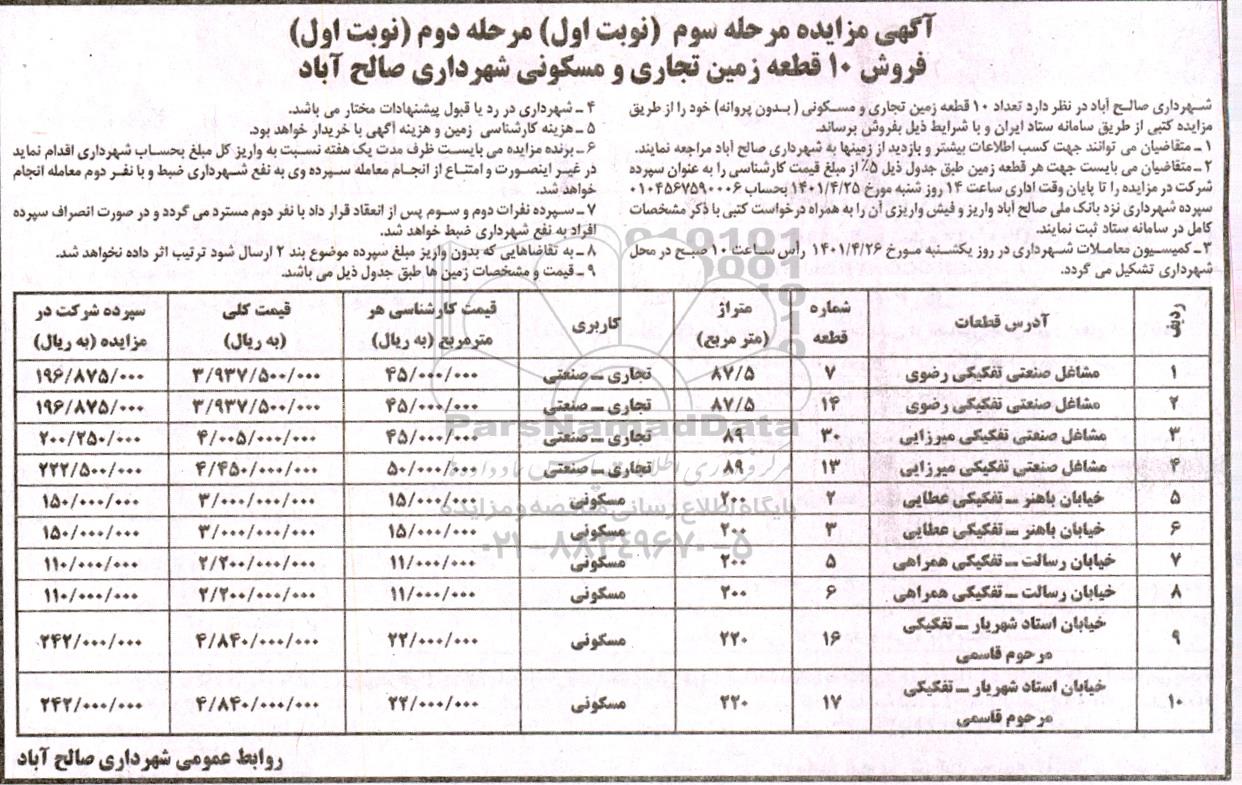 آگهی مزایده مرحله سوم (نوبت اول) مرحله دوم (نوبت اول)
فروش ۱۰ قطعه زمین تجاری و مسکونی شهرداری صالح آباد
شهرداری صالح آباد در نظر دارد تعداد ۱۰ قطعه زمین تجاری و مسکونی (بدون پروانه) خود را از طریق
مزایده کتبی از طریق سامانه ستاد ایران و با شرایط ذیل بفروش برساند.
۱ ـ متقاضیان می توانند جهت کسب اطلاعات بیشتر و بازدید از زمینها به شهرداری صالح آباد مراجعه نمایند.
۲ ـ متقاضیان می بایست جهت هر قطعه زمین طبق جدول ذیل ۵٪ از مبلغ قیمت کارشناسی را به عنوان سپرده
شرکت در مزایده را تا پایان وقت اداری ساعت ۱۴ روز شنبه مورخ ۱۴۰۱/۴/۲۵ بحساب ۰۱۰۴۵۶۷۵۹۰۰۰۶
سپرده شهرداری نزد بانک ملی صالح آباد واریز و فیش واریزی آن را به همراه درخواست کتبی با ذکر مشخصات
کامل در سامانه ستاد ثبت نمایند.
۳ ـ کمیسیون معاملات شهرداری در روز یکشنبه مورخ ۱۴۰۱/۴/۲۶ رأس ساعت ۱۰ صبح در محل
شهرداری تشکیل می گردد.
۴ ـ شهرداری در رد یا قبول پیشنهادات مختار می باشد.
۵ ـ هزینه کارشناسی زمین و هزینه آگهی با خریدار خواهد بود.
۶ ـ برنده مزایده می بایست ظرف مدت یک هفته نسبت به واریز کل مبلغ بحساب شهرداری اقدام نماید
در غیر اینصورت و امتناع از انجام معامله سپرده وی به نفع شهرداری ضبط و با نفر دوم معامله انجام
خواهد شد.
۷ ـ سپرده نفرات دوم و سوم پس از انعقاد قرار داد با نفر دوم مسترد می گردد و در صورت انصراف سپرده
افراد به نفع شهرداری ضبط خواهد شد.
۸ ـ به تقاضاهایی که بدون واریز مبلغ سپرده موضوع بند ۲ ارسال شود ترتیب اثر داده نخواهد شد.
۹ ـ قیمت و مشخصات زمین ها طبق جدول ذیل می باشد.
ردیف آدرس قطعات شماره قطعه متراژ (متر مربع) کاربری قیمت کارشناسی هر مترمربع (به ریال) قیمت کلی (به ریال) سپرده شرکت در مزایده (به ریال)
۱ مشاغل صنعتی تفکیکی رضوی ۷ ۸۷/۵ تجاری ـ صنعتی ۴۵/۰۰۰/۰۰۰ ۳/۹۳۷/۵۰۰/۰۰۰ ۱۹۶/۸۷۵/۰۰۰
۲ مشاغل صنعتی تفکیکی رضوی ۱۴ ۸۷/۵ تجاری ـ صنعتی ۴۵/۰۰۰/۰۰۰ ۳/۹۳۷/۵۰۰/۰۰۰ ۱۹۶/۸۷۵/۰۰۰
۳ مشاغل صنعتی تفکیکی میرزایی ۳۰ ۸۹ تجاری ـ صنعتی ۴۵/۰۰۰/۰۰۰ ۴/۰۰۵/۰۰۰/۰۰۰ ۲۰۰/۲۵۰/۰۰۰
۴ مشاغل صنعتی تفکیکی میرزایی ۱۳ ۸۹ تجاری ـ صنعتی ۵۰/۰۰۰/۰۰۰ ۴/۴۵۰/۰۰۰/۰۰۰ ۲۲۲/۵۰۰/۰۰۰
۵ خیابان باهنر ـ تفکیکی عطایی ۲ ۲۰۰ مسکونی ۱۵/۰۰۰/۰۰۰ ۳/۰۰۰/۰۰۰/۰۰۰ ۱۵۰/۰۰۰/۰۰۰
۶ خیابان باهنر ـ تفکیکی عطایی ۳ ۲۰۰ مسکونی ۱۵/۰۰۰/۰۰۰ ۳/۰۰۰/۰۰۰/۰۰۰ ۱۵۰/۰۰۰/۰۰۰
۷ خیابان رسالت ـ تفکیکی همراهی ۵ ۲۰۰ مسکونی ۱۱/۰۰۰/۰۰۰ ۲/۲۰۰/۰۰۰/۰۰۰ ۱۱۰/۰۰۰/۰۰۰
۸ خیابان رسالت ـ تفکیکی همراهی ۶ ۲۰۰ مسکونی ۱۱/۰۰۰/۰۰۰ ۲/۲۰۰/۰۰۰/۰۰۰ ۱۱۰/۰۰۰/۰۰۰
۹ خیابان استاد شهریار ـ تفکیکی مرحوم قاسمی ۱۶ ۲۲۰ مسکونی ۲۲/۰۰۰/۰۰۰ ۴/۸۴۰/۰۰۰/۰۰۰ ۲۴۲/۰۰۰/۰۰۰
۱۰ خیابان استاد شهریار ـ تفکیکی مرحوم قاسمی ۱۷ ۲۲۰ مسکونی ۲۲/۰۰۰/۰۰۰ ۴/۸۴۰/۰۰۰/۰۰۰ ۲۴۲/۰۰۰/۰۰۰
روابط عمومی شهرداری صالح آباد
ParsNamadData
پایگاه اطلاع رسانی مناقصه و مزایده
۰۲۱-۸۸۳۴۹۶۷۰-۵